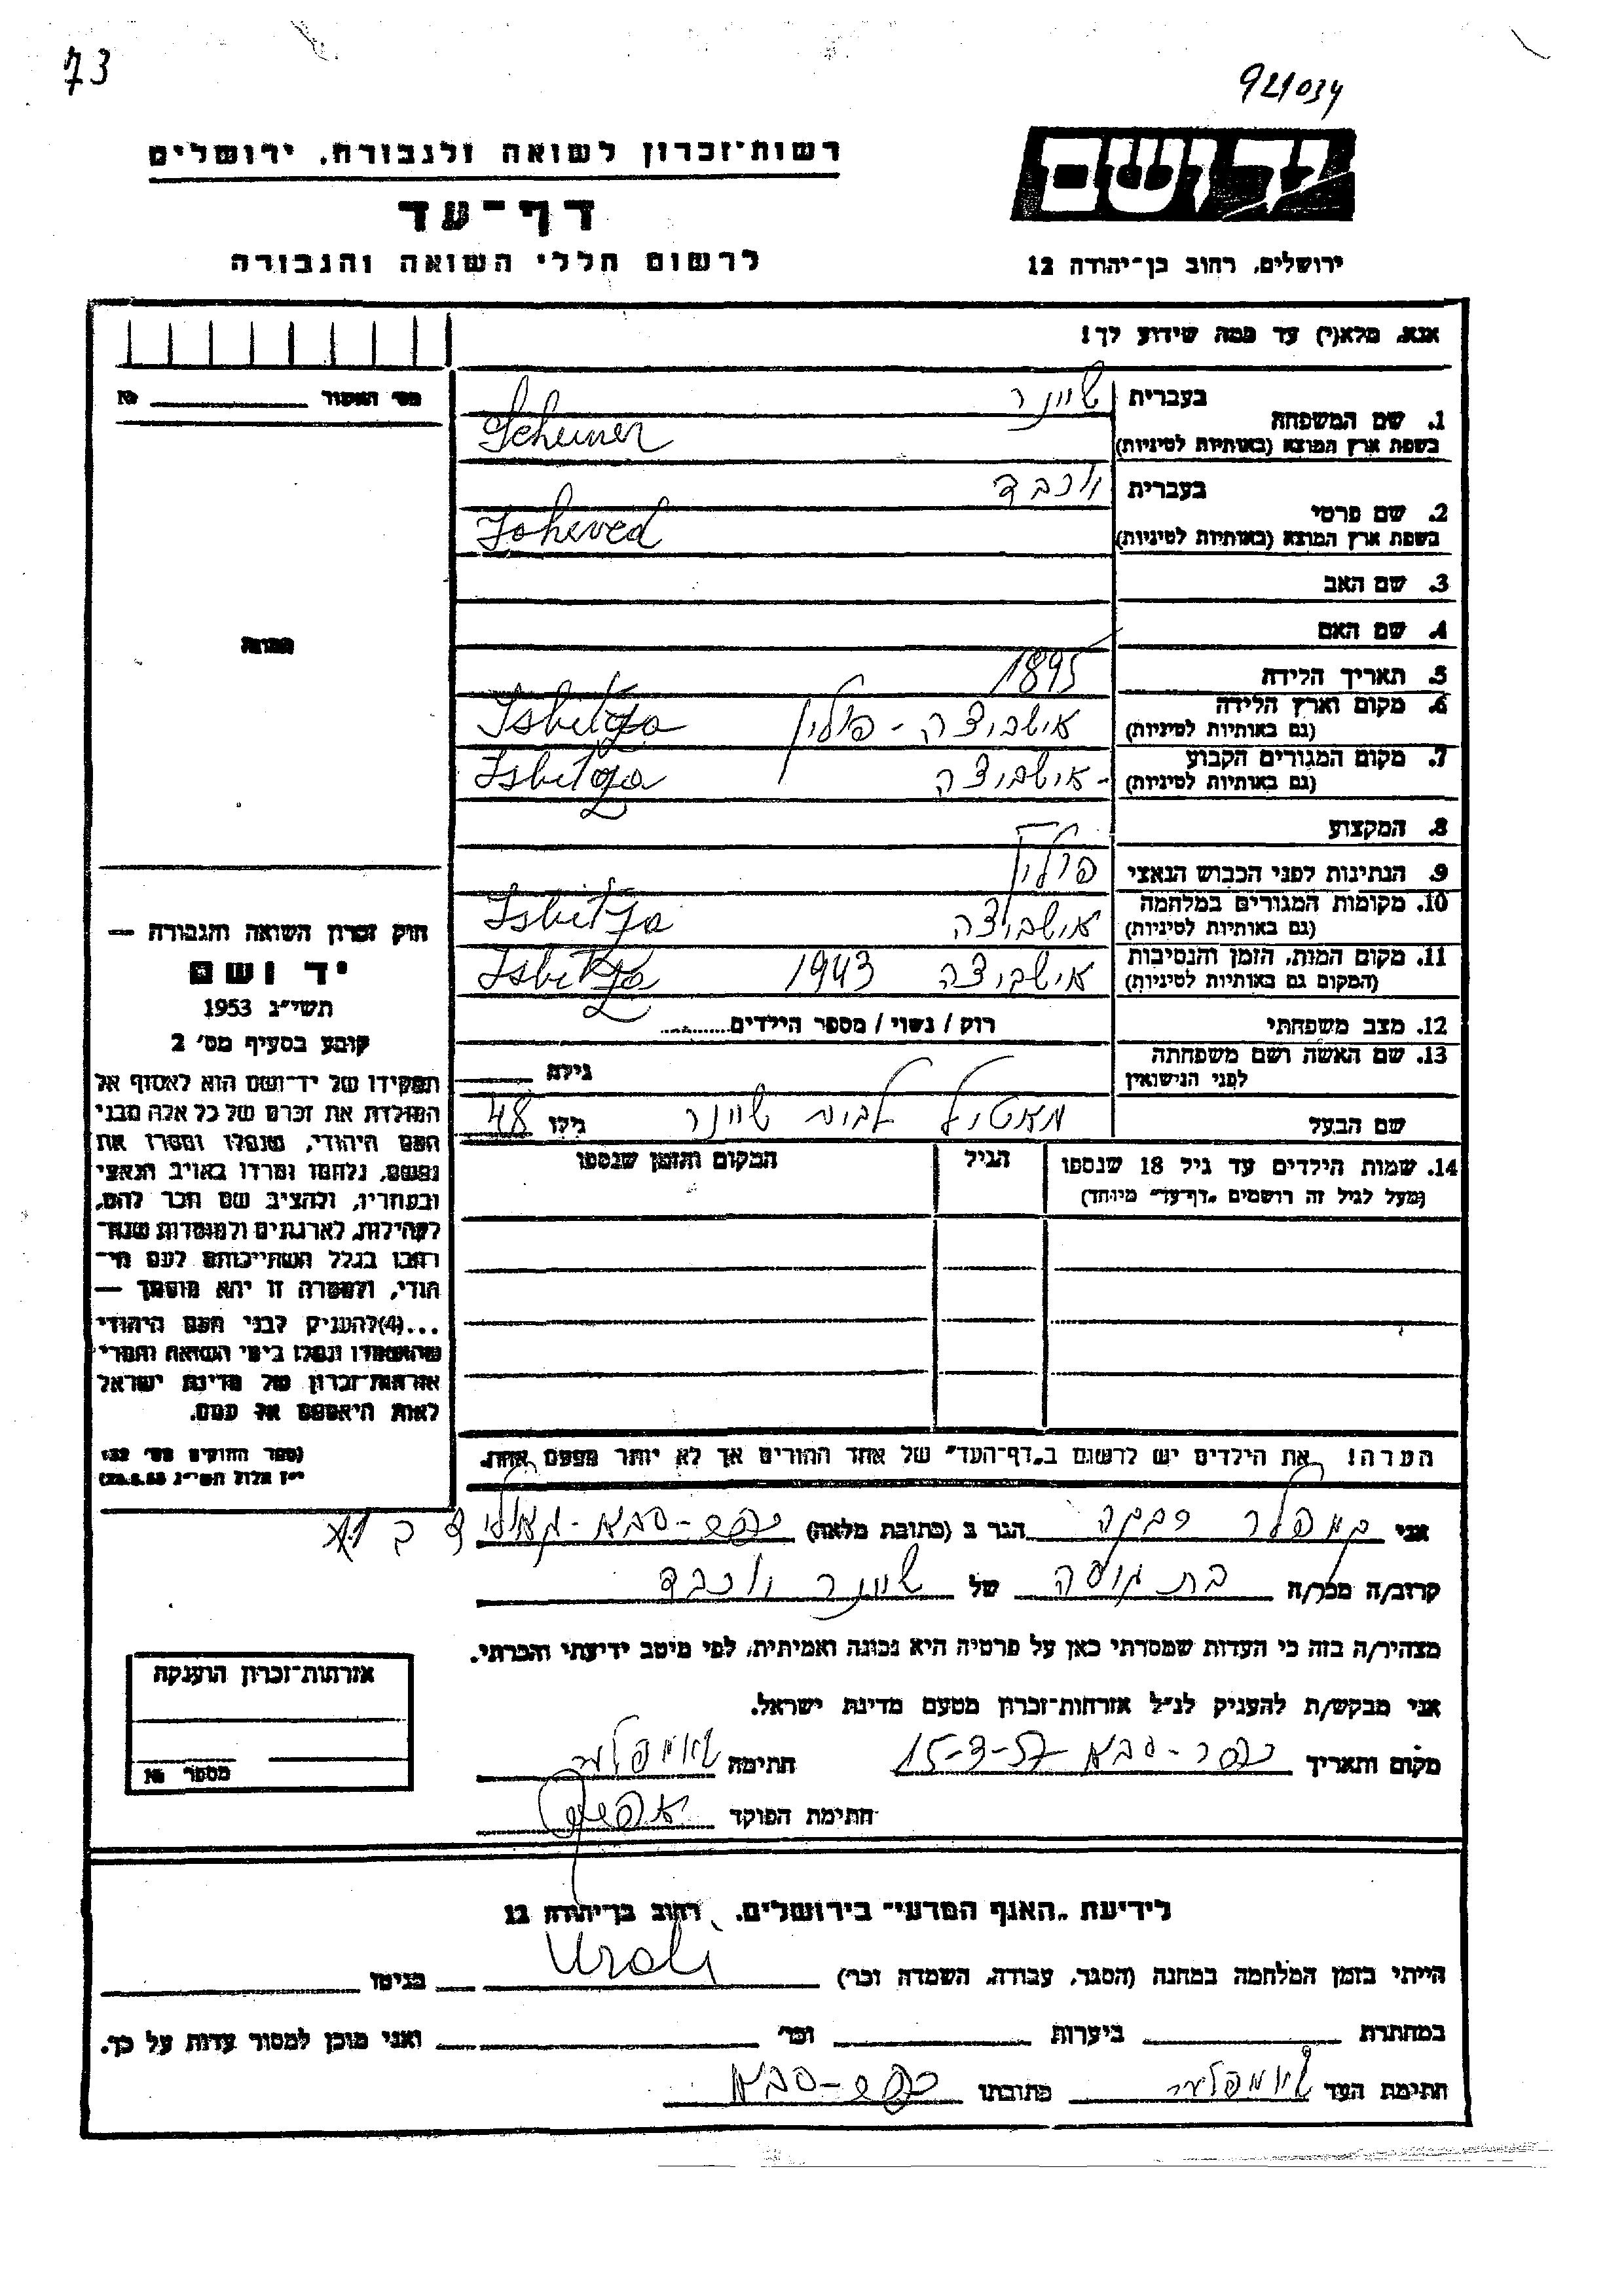 73
921034
רשות־זכרון לשואה ולגבורה, ירושלים
יד ושם
דף־עד
לרשום חללי השואה והגבורה
ירושלים, רחוב בן־יהודה 12
אנא, מלא(י) עד כמה שידוע לך!
מס׳ האשור № ______
תמונה
1. שם המשפחה בעברית שיינר
בשפת ארץ המוצא (באותיות לטיניות) Scheiner
2. שם פרטי בעברית יוכבד
בשפת ארץ המוצא (באותיות לטיניות) Joheved
3. שם האב
4. שם האם
5. תאריך הלידה 1895
6. מקום וארץ הלידה איזביצה - פולין Isbitza
(גם באותיות לטיניות)
7. מקום המגורים הקבוע איזביצה Isbitza
(גם באותיות לטיניות)
8. המקצוע
9. הנתינות לפני הכבוש הנאצי פולין
10. מקומות המגורים במלחמה איזביצה Isbitza
(גם באותיות לטיניות)
11. מקום המות, הזמן והנסיבות איזביצה 1943 Isbitza
(המקום גם באותיות לטיניות)
12. מצב משפחתי רוק / נשוי / מספר הילדים..........
13. שם האשה ושם משפחתה גילה ______
לפני הנישואין
שם הבעל שיינר גילו 48
14. שמות הילדים עד גיל 18 שנספו הגיל המקום והזמן שנספו
(מעל לגיל זה רושמים „דף־עד״ מיוחד)
הערה! את הילדים יש לרשום ב„דף־העד״ של אחד ההורים אך לא יותר מפעם אחת.
חוק זכרון השואה והגבורה —
יד ושם
תשי״ג 1953
קובע בסעיף מס׳ 2
תפקידו של יד־ושם הוא לאסוף אל
המולדת את זכרם של כל אלה מבני
העם היהודי, שנפלו ומסרו את
נפשם, נלחמו ומרדו באויב הנאצי
ובעוזריו, ולהציב שם וזכר להם,
לקהילות, לארגונים ולמוסדות שנח־
רבו בגלל השתייכותם לעם הי־
הודי, ולמטרה זו יהא מוסמך —
...(4)להעניק לבני העם היהודי
שהושמדו ונפלו בימי השואה והמרי
אזרחות־זכרון של מדינת ישראל
לאות היאספם אל עמם.
(ספר החוקים מס׳ 132
י״ז אלול תשי״ג 28.8.53)
אני רבקה הגר ב (כתובת מלאה) כפר-סבא-
קרוב/ה מכר/ה בת של שיינר יוכבד
מצהיר/ה בזה כי העדות שמסרתי כאן על פרטיה היא נכונה ואמיתית, לפי מיטב ידיעתי והכרתי.
אני מבקש/ת להעניק לנ״ל אזרחות־זכרון מטעם מדינת ישראל.
מקום ותאריך כפר-סבא 15-3-57 חתימה
חתימת הפוקד
אזרחות־זכרון הוענקה
מספר №
לידיעת „האגף המדעי״ בירושלים, רחוב בן־יהודה 12
הייתי בזמן המלחמה במחנה (הסגר, עבודה, השמדה וכו׳) Urali בגיטו
במחתרת ______ ביערות ______ וכו׳ ______ ואני מוכן למסור עדות על כך.
חתימת העד כתובתו כפר-סבא